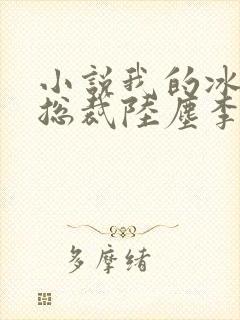 小說我的冰
总裁陸塵李
多摩绪